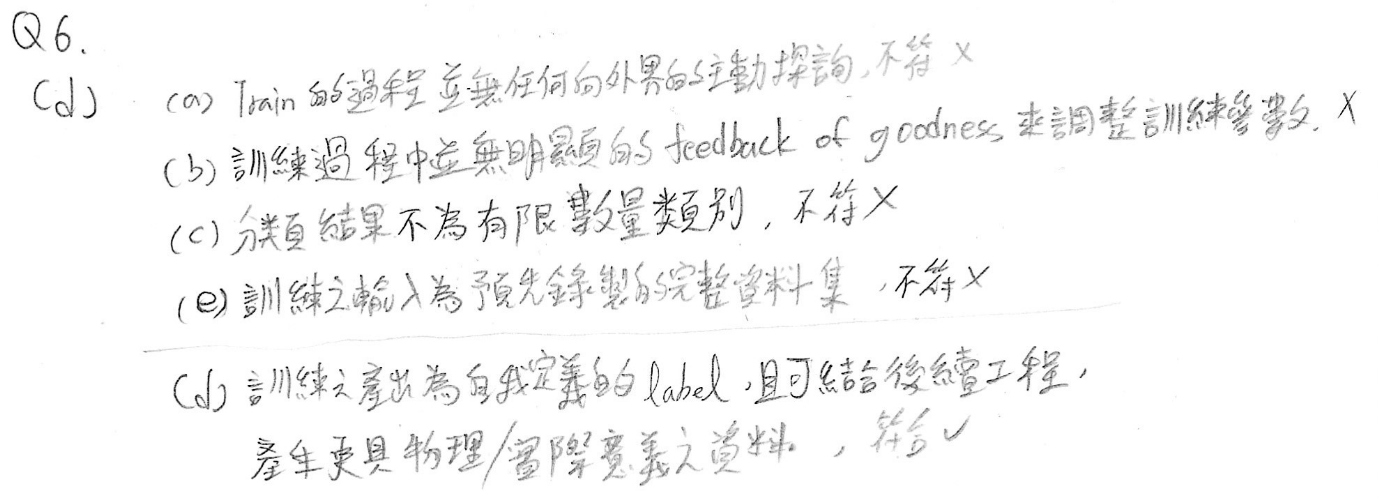 Q6.
(d) (a) Train的過程並無任何向外界的主動探詢,不符 X
(b) 訓練過程中並無明顯的 feedback of goodness 來調整訓練參數. X
(c) 分類結果不為有限數量類別, 不符 X
(e) 訓練之輸入為預先錄製的完整資料集,不符 X
(d) 訓練之產出為自我定義的 label,且可結合後續工程,
產生更具物理/實際意義之資料。,符合✓